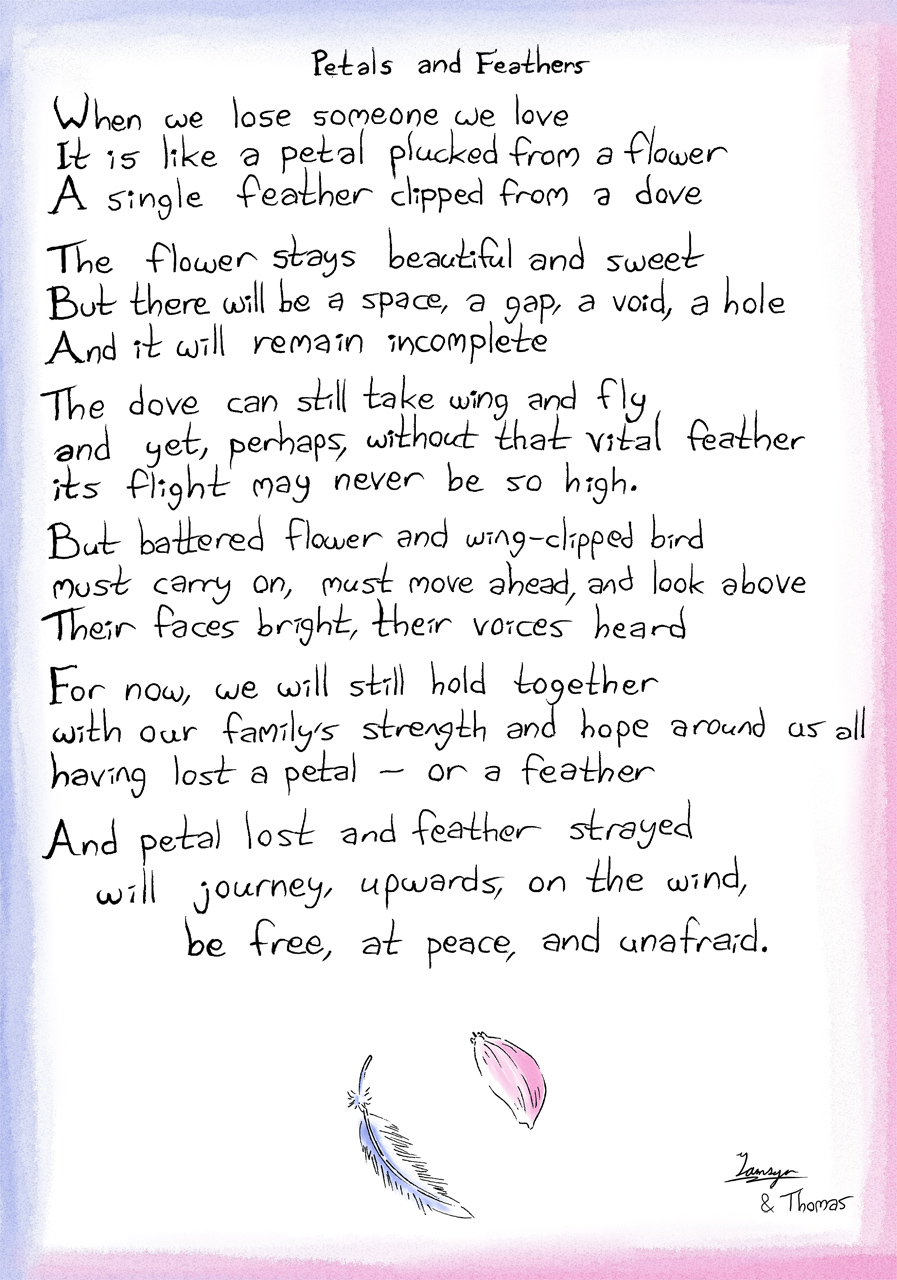 Petals and Feathers
When we lose someone we love
It is like a petal plucked from a flower
A single feather clipped from a dove
The flower stays beautiful and sweet
But there will be a space, a gap, a void, a hole
And it will remain incomplete
The dove can still take wing and fly,
and yet, perhaps, without that vital feather
its flight may never be so high.
But battered flower and wing-clipped bird
must carry on, must move ahead, and look above
Their faces bright, their voices heard
For now, we will still hold together
with our family's strength and hope around us all
having lost a petal – or a feather
And petal lost and feather strayed
will journey, upwards, on the wind,
be free, at peace, and unafraid.
Tamsyn
& Thomas